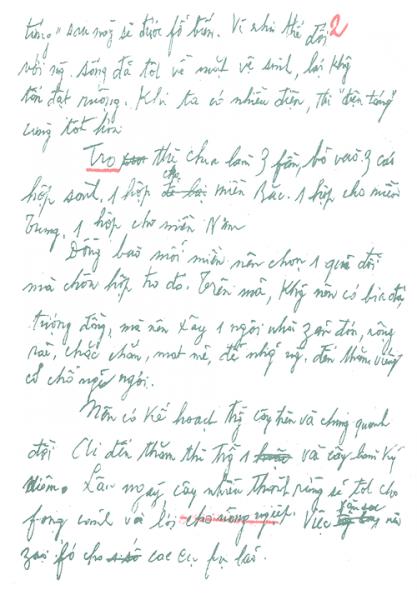 táng" sau này sẽ được fổ biến. Vì như thế đối 2
với ng. sống đã tốt về mặt vệ sinh, lại khg
tốn đất ruộng. Khi ta có nhiều điện, thì "điện táng"
càng tốt hơn.
Tro thì chia làm 3 fần, bỏ vào 3 cái
hộp sành, 1 hộp cho miền Bắc. 1 hộp cho miền
Trung, 1 hộp cho miền Nam
Đồng bào mỗi miền nên chọn 1 quả đồi
mà chôn hộp tro đó. Trên mả, khg nên có bia đá,
tượng đồng, mà nên xây 1 ngôi nhà zản đơn, rộng
rãi, chắc chắn, mát mẻ, để nhg ng. đến thăm viếng
có chỗ nghỉ ngơi.
Nên có kế hoạch trg cây trên và chung quanh
đồi. Ai đến thăm thì trg 1 vài cây làm kỷ
niệm. Lâu ngày, cây nhiều thành rừng sẽ tốt cho
fong cảnh và lợi cho nông nghiệp. Việc săn sóc nên
zao fó cho các cụ fụ lão.